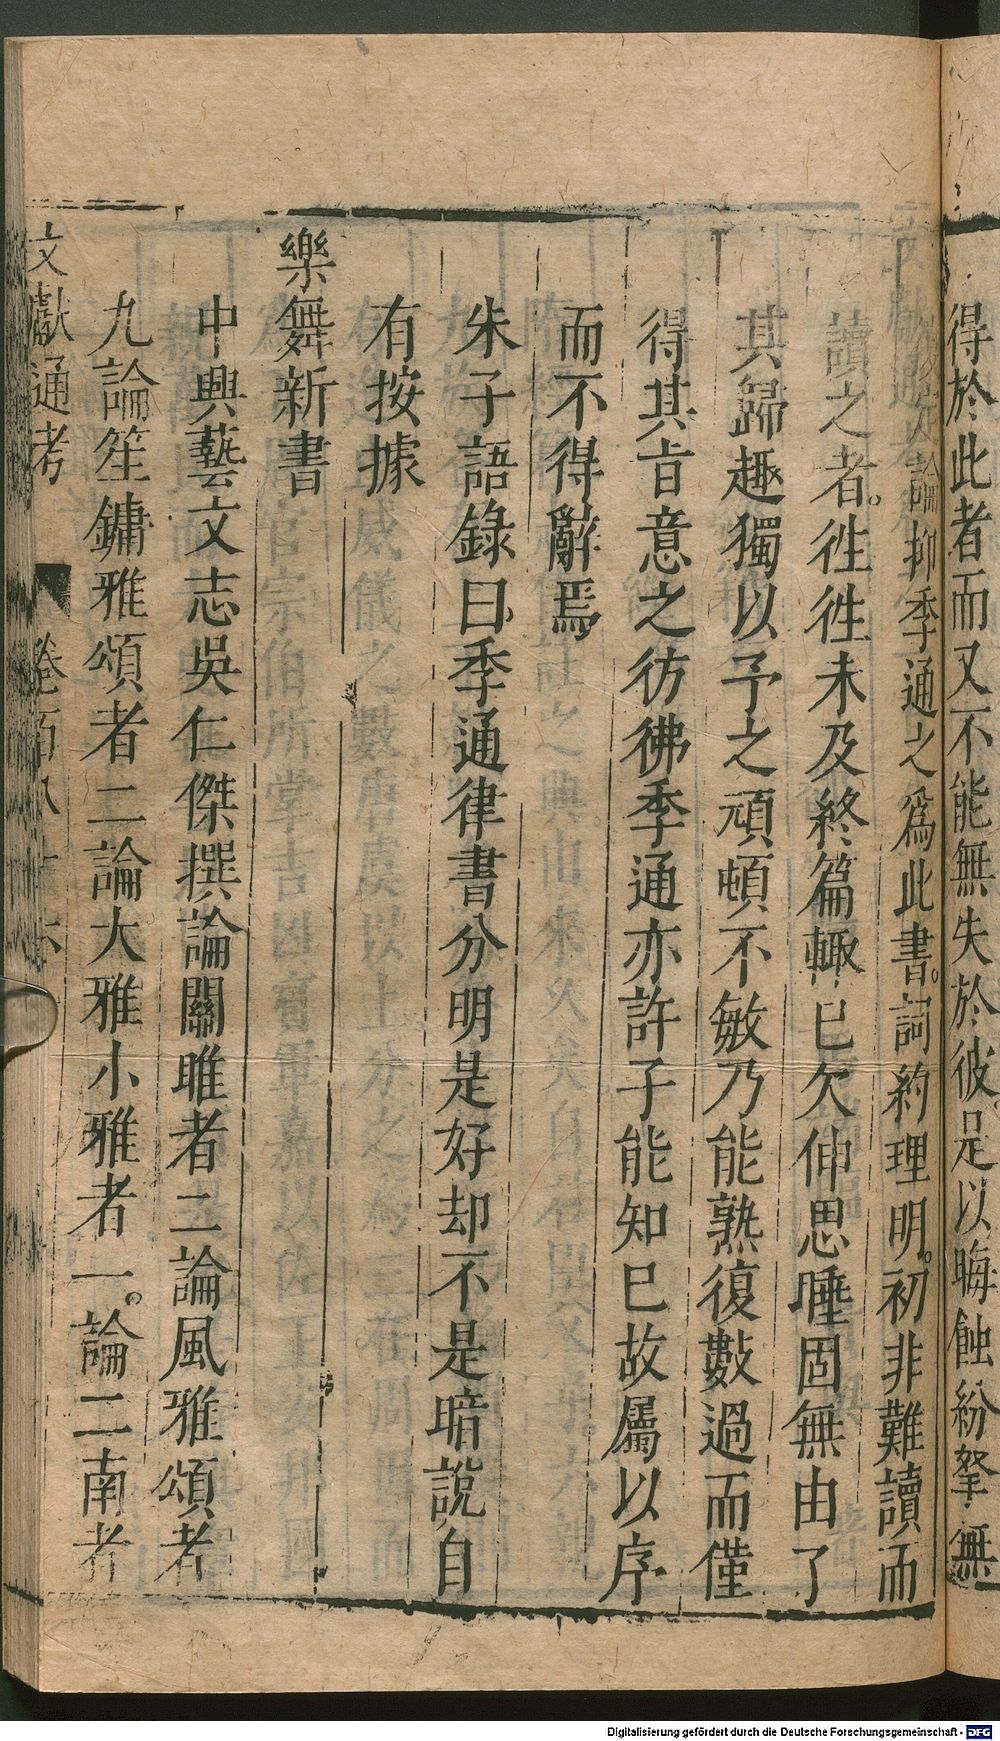 得於此者而又不能無失於彼是以晦蝕紛拏無
論抑季通之爲此書詞約理明初非難讀而
讀之者徃徃未及終篇輙已欠伸思睡固無由了
其歸趣獨以予之頑頓不敏乃能熟復數過而僅
得其旨意之彷彿季通亦許予能知已故屬以序
而不得辭焉
朱子語錄曰季通律書分明是好却不是暗說自
有按據
樂舞新書
中興藝文志吳仁傑撰論關雎者二論風雅頌者
九論笙鏞雅頌者二論大雅小雅者一論二南者
文獻通考
卷百八十六
Digitalisierung gefördert durch die Deutsche Forschungsgemeinschaft - DFG